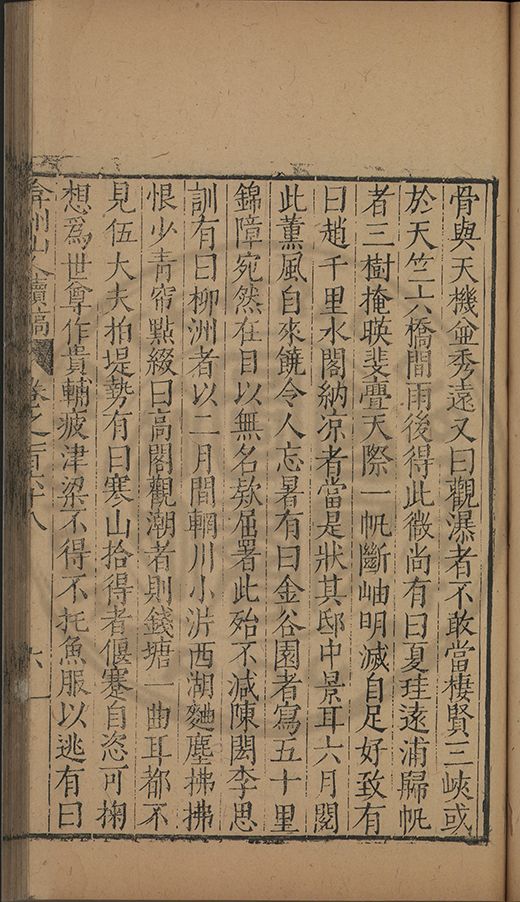 骨與天機並秀遠又曰觀瀑者不敢當棲賢三峽或
於天竺六橋間雨後得此微尚有曰夏珪遠浦歸帆
者三樹掩暎斐亹天際一帆斷岫明滅自足好致有
曰趙千里水閣納凉者當是狀其邸中景耳六月閱
此薰風自來饒令人忘暑有曰金谷園者寫五十里
錦障宛然在目以無名欵屈署此殆不減陳閎李思
訓有曰柳洲者以二月間輞川小泝西湖麯塵拂拂
恨少青帘點綴曰高閣觀潮者則錢塘一曲耳都不
見伍大夫拍堤勢有曰寒山拾得者偃蹇自恣可掬
想為世尊作貴輔疲津梁不得不托魚服以逃有曰
弇州山人續稿 卷之一百六十八 六